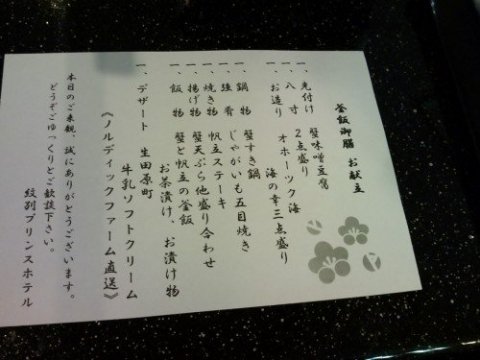 釜飯御膳 お献立
一、先付け 蟹味噌豆腐
一、八寸 2点盛り
一、お造り オホーツク海
海の幸三点盛り
一、鍋物 蟹すき鍋
一、強肴 じゃがいも五目焼き
一、焼き物 帆立ステーキ
一、揚げ物 蟹天ぷら他盛り合わせ
一、飯物 蟹と帆立の釜飯
お茶漬け、お漬け物
一、デザート 生田原町
牛乳ソフトクリーム
《ノルディックファーム直送》
本日のご来観、誠にありがとうございます。
どうぞごゆっくりとご歓談下さい。
紋別プリンスホテル